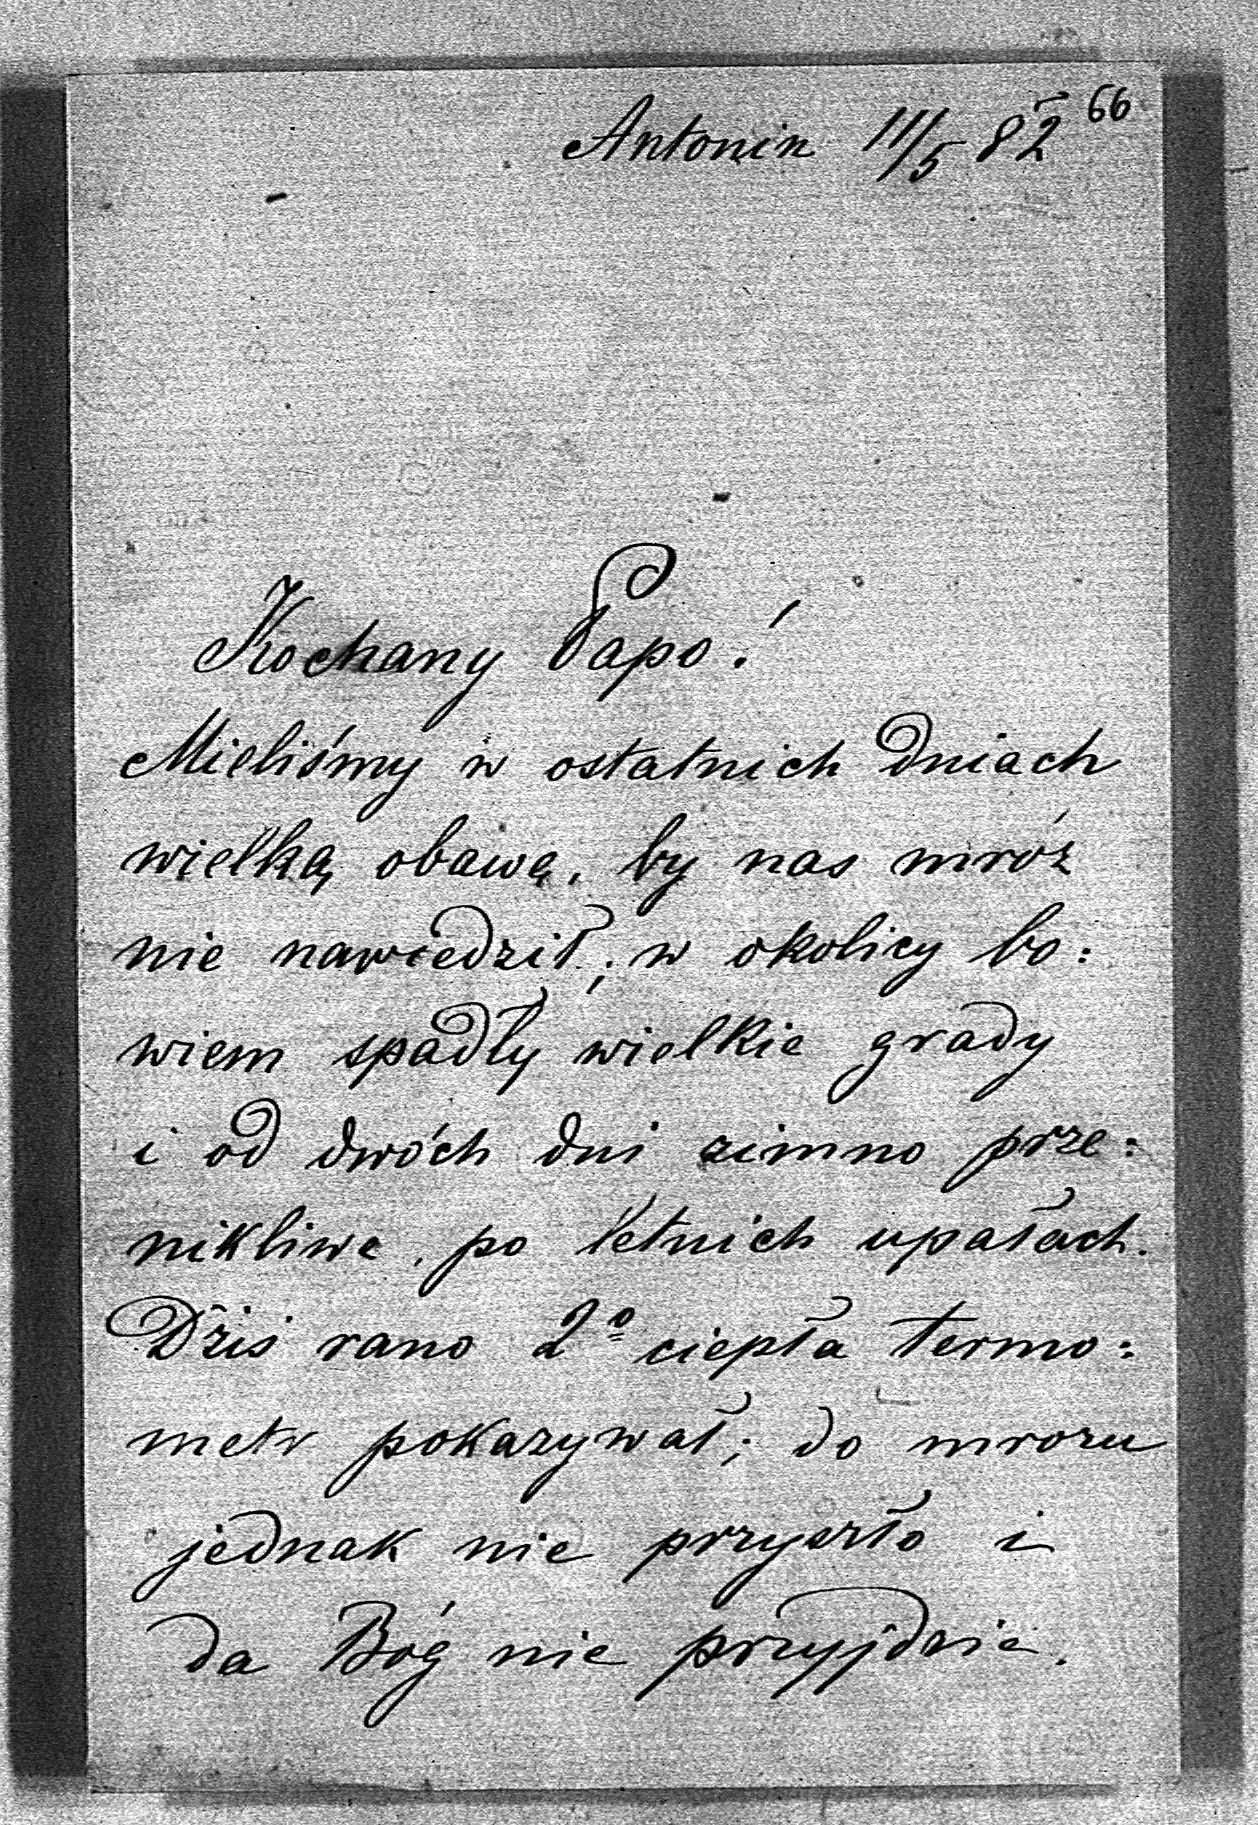 66
Antonin 11/5 82
Kochany Papo!
Mieliśmy w ostatnich dniach
wielką obawę, by nas mróz
nie nawiedził; w okolicy bo:
wiem spadły wielkie grady
i od dwóch dni zimno prze:
nikliwe, po letnich upałach.
Dziś rano 2º ciepła termo:
metr pokazywał; do mrozu
jednak nie przyszło i
da Bóg nie przyjdzie.